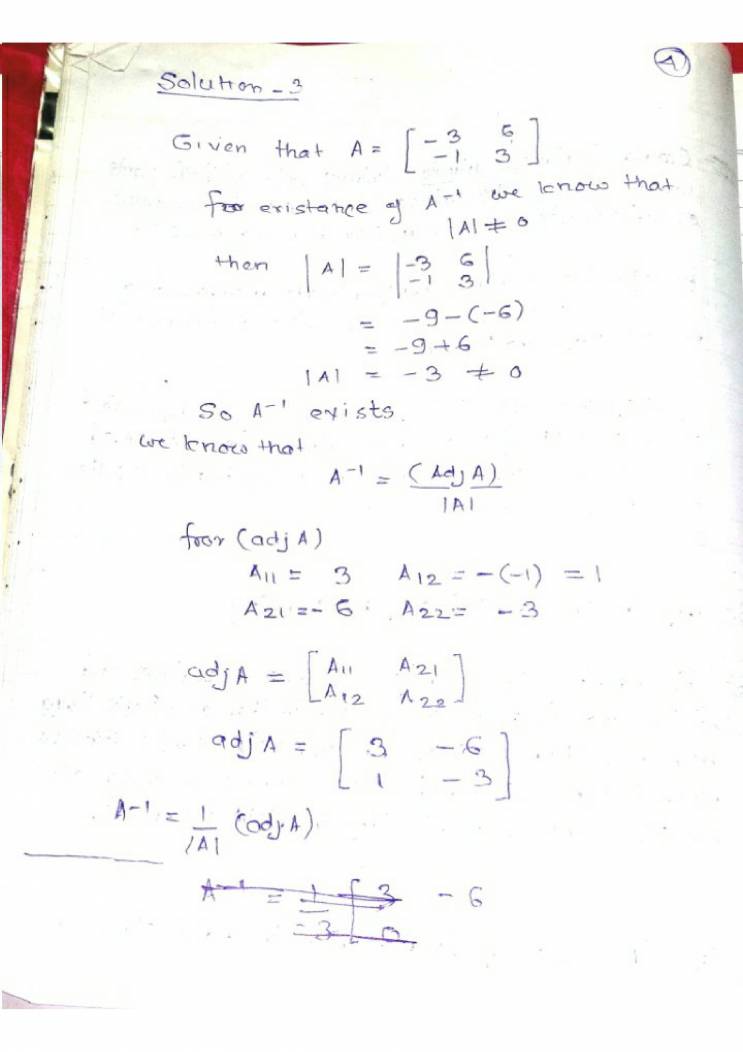 4
Solution - 3
Given that A = [ -3 6
-1 3 ]
for existance of A⁻¹ we know that
|A| ≠ 0
then |A| = | -3 6
-1 3 |
= -9 - (-6)
= -9 + 6
|A| = -3 ≠ 0
So A⁻¹ exists.
we know that
A⁻¹ = (Adj A)
|A|
foor (adj A)
A11 = 3 A12 = -(-1) = 1
A21 = -6 A22 = -3
adj A = [ A11 A21
A12 A22 ]
adj A = [ 3 -6
1 -3 ]
A⁻¹ = 1 (adj A)
|A|
A⁻¹ = 1 [ 3 -6
-3 0